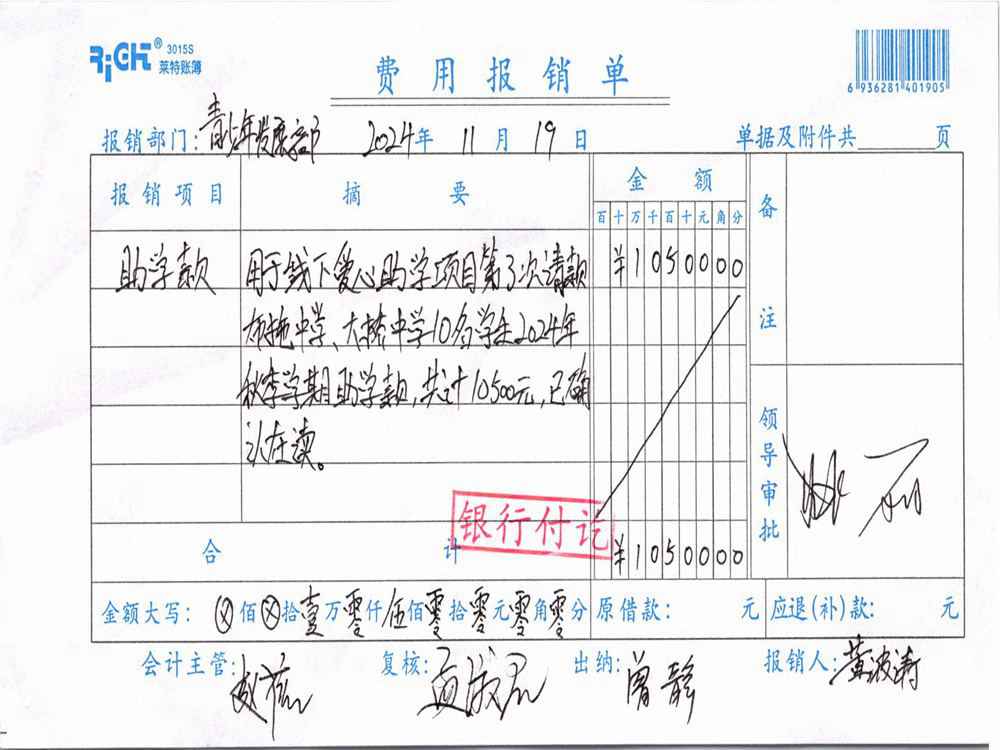 RiGHT® 3015S
莱特账簿
费用报销单
6 936281 401905
报销部门:青少年发展部 2024年 11月 19日 单据及附件共 页
报销项目 摘要 金额 备注
百十万千百十元角分
助学款 用于线下爱心助学项目第3次请款 ¥1050000
布拖中学、大桥中学10名学生2024年
秋季学期助学款,共计10500元,已确
认在读。
领导审批
银行付讫
合计 ¥1050000
金额大写: ⊗佰⊗拾壹万零仟伍佰零拾零元零角零分 原借款: 元 应退(补)款: 元
会计主管: 复核: 出纳:曾静 报销人:黄波涛